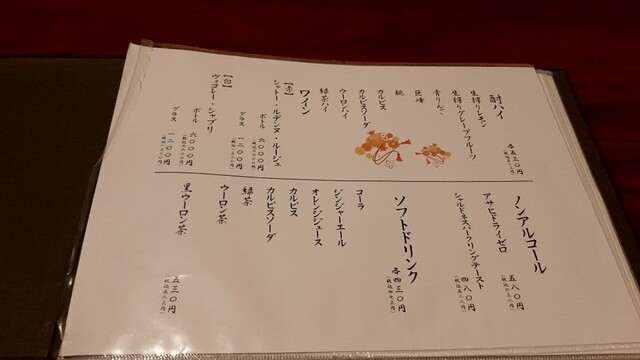 酎ハイ
各五三〇円
生搾りレモン
生搾りグレープフルーツ
青りんご
巨峰
桃
カルピス
カルピスソーダ
ウーロンハイ
緑茶ハイ
ワイン
【赤】
シャトー・ルデンヌ・ルージュ
ボトル 六〇〇〇円
グラス 一二〇〇円
【白】
ヴィコレー・シャブリ
ボトル 六〇〇〇円
グラス 一二〇〇円
ノンアルコール
アサヒドライゼロ 五八〇円
シャルドネスパークリングテースト 四八〇円
ソフトドリンク
各四三〇円
(税込四七三円)
コーラ
ジンジャーエール
オレンジジュース
カルピス
カルピスソーダ
緑茶
ウーロン茶
黒ウーロン茶 五三〇円
(税込五八三円)